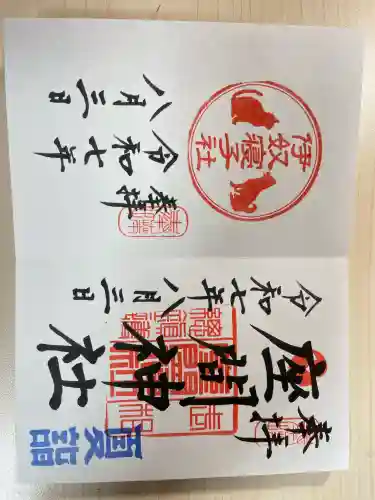 奉拝
座間神社
令和七年八月三日
夏詣
奉拝
伊奴寝子社
令和七年
八月三日